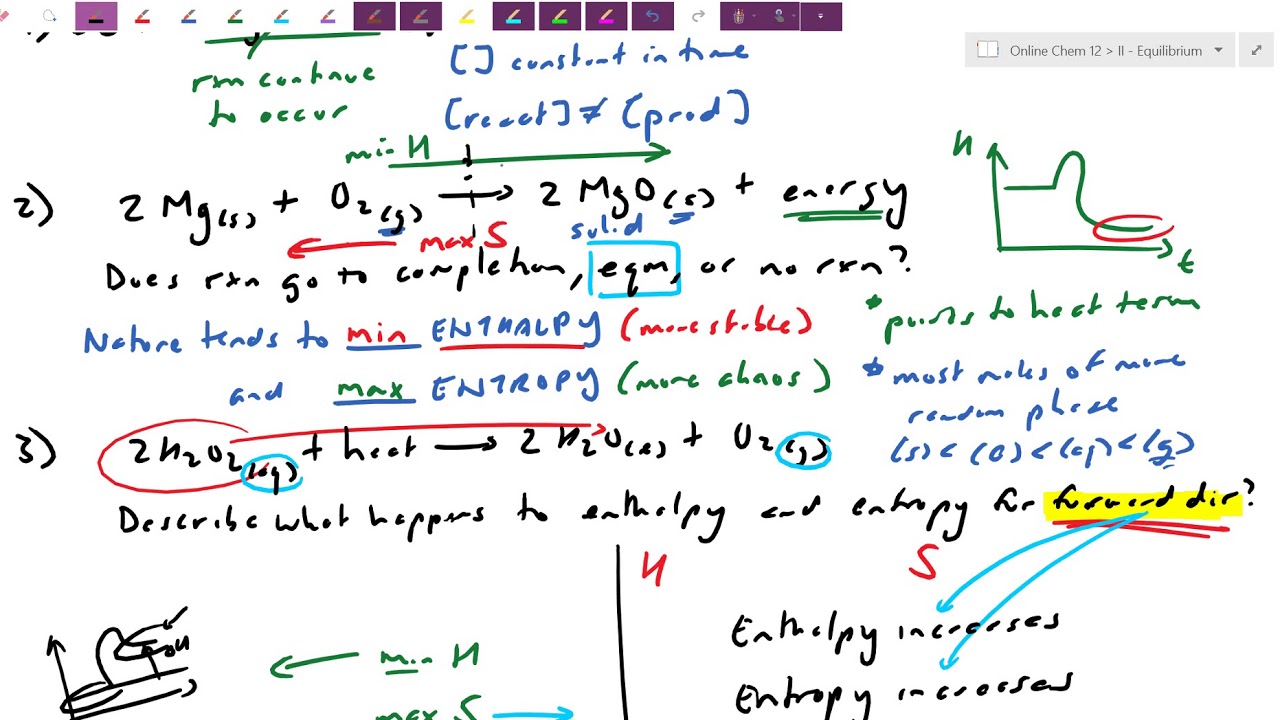 Online Chem 12 > II - Equilibrium
rxn continue
to occur
[] constant in time
[react] ≠ [prod]
min H
2) 2 Mg(s) + O2(g) → 2 MgO(s) + energy
max S
solid
Does rxn go to completion, eqm, or no rxn?
Nature tends to min ENTHALPY (more stable)
and max ENTROPY (more chaos)
H
t
* points to heat term
* most moles of more
random phase
(s) < (l) < (aq) < (g)
3) 2H2O2(aq) + heat → 2H2O(l) + O2(g)
Describe what happens to enthalpy and entropy for forward dir?
H
S
Enthalpy increases
Entropy increases
min H
max S